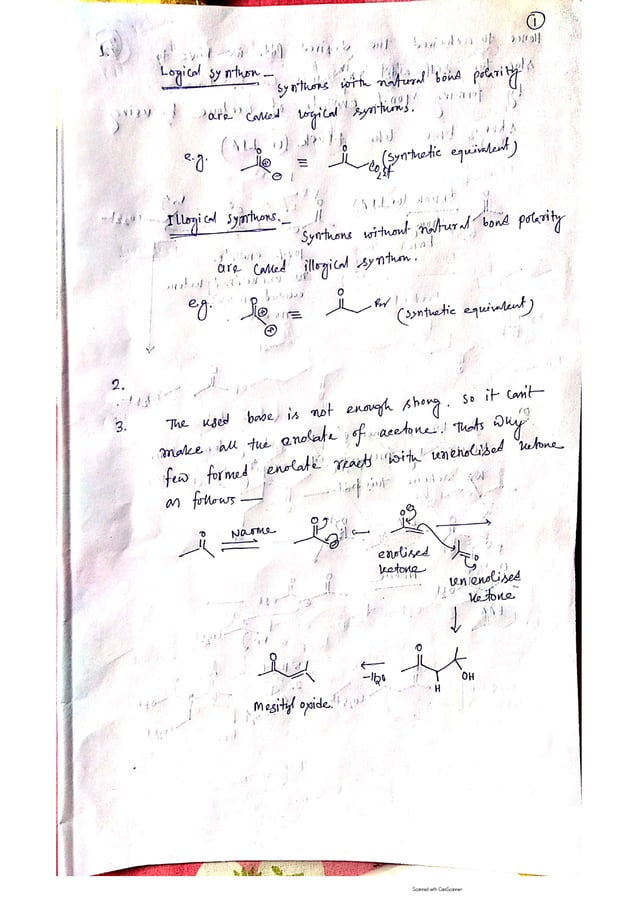 ①
1.
Logical synthon —
synthons with natural bond polarity
are called logical synthons.
e.g. O ⊕ ⊖ ≡ O CO2Et (synthetic equivalent)
Illogical synthons. —
Synthons without natural bond polarity
are called illogical synthon.
eg. ⊕ ⊕ ≡ O Br (synthetic equivalent)
2.
3. The used base is not enough strong. so it can't
make all the enolate of acetone. thats why
few formed enolate reacts with unenolised ketone
as follows —
O NaOMe O ⊖ O⊖
enolised
ketone
O
unenolised
ketone
O ← -H2O O OH
H
Mesityl oxide.
Scanned with CamScanner